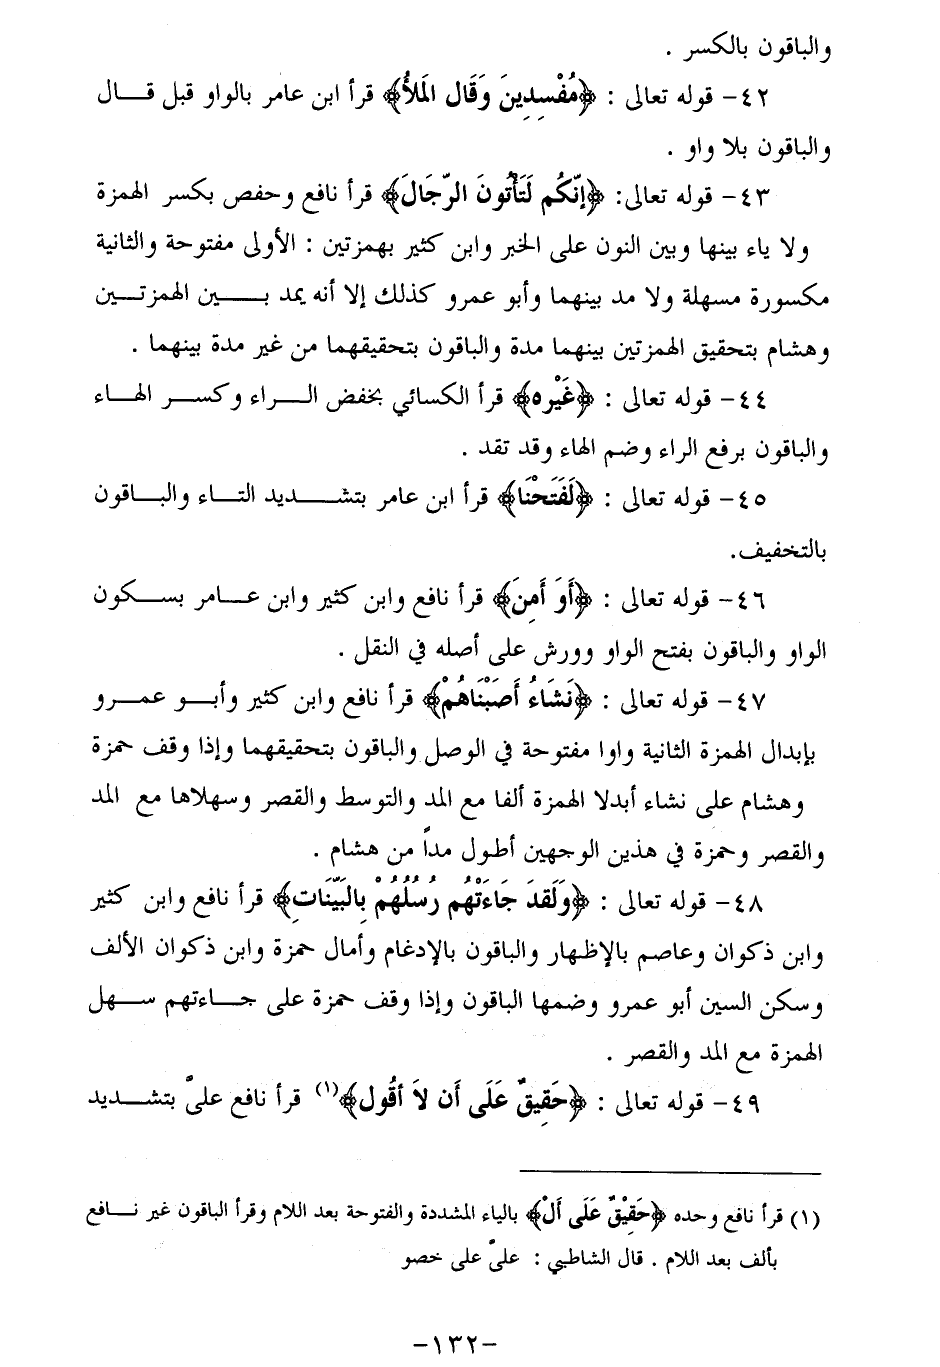 والباقون بالكسر .
٤٢- قوله تعالى : ﴿مُفْسِدِينَ وَقَال المَلأُ﴾ قرأ ابن عامر بالواو قبل قال
والباقون بلا واو .
٤٣- قوله تعالى: ﴿إنّكُم لَتَأتُونَ الرّجَالَ﴾ قرأ نافع وحفص بكسر الهمزة
ولا ياء بينها وبين النون على الخبر وابن كثير بهمزتين : الأولى مفتوحة والثانية
مكسورة مسهلة ولا مد بينهما وأبو عمرو كذلك إلا أنه يمد بين الهمزتين
وهشام بتحقيق الهمزتين بينهما مدة والباقون بتحقيقهما من غير مدة بينهما .
٤٤- قوله تعالى : ﴿غَيْره﴾ قرأ الكسائي بخفض الراء وكسر الهاء
والباقون برفع الراء وضم الهاء وقد تقد .
٤٥- قوله تعالى : ﴿لَفَتَحْنَا﴾ قرأ ابن عامر بتشديد التاء والباقون
بالتخفيف.
٤٦- قوله تعالى : ﴿أَوَ أَمِنَ﴾ قرأ نافع وابن كثير وابن عامر بسكون
الواو والباقون بفتح الواو وورش على أصله في النقل .
٤٧- قوله تعالى : ﴿نَشَاءُ أَصَبْنَاهُمْ﴾ قرأ نافع وابن كثير وأبو عمرو
بإبدال الهمزة الثانية واوا مفتوحة في الوصل والباقون بتحقيقهما وإذا وقف حمزة
وهشام على نشاء أبدلا الهمزة ألفا مع المد والتوسط والقصر وسهلاها مع المد
والقصر وحمزة في هذين الوجهين أطول مداً من هشام .
٤٨- قوله تعالى : ﴿وَلَقَدَ جَاءَتْهُم رُسُلُهُمْ بِالبَيّنَاتِ﴾ قرأ نافع وابن كثير
وابن ذكوان وعاصم بالإظهار والباقون بالإدغام وأمال حمزة وابن ذكوان الألف
وسكن السين أبو عمرو وضمها الباقون وإذا وقف حمزة على جاءتهم سهل
الهمزة مع المد والقصر .
٤٩- قوله تعالى : ﴿حَقِيقٌ عَلَى أَن لاَ أقُول﴾(١) قرأ نافع عليّ بتشديد
(١) قرأ نافع وحده ﴿حَقِيْقٌ عَلَى أَلْ﴾ بالياء المشددة والفتوحة بعد اللام وقرأ الباقون غير نافع
بألف بعد اللام . قال الشاطبي : عليّ على خصو
-١٣٢-